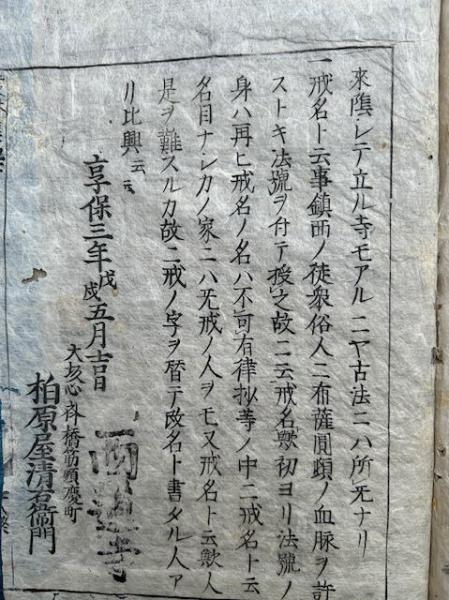 來隱シテ立ル寺モアルニヤ古法ニハ所无ナリ
一戒名ト云事鎮西ノ徒衆俗人ニ布薩圓頓ノ血脉ヲ許
ストキ法號ヲ付テ授之故ニ云戒名歟初ヨリ法號ノ
身ハ再ヒ戒名ノ名ハ不可有律抄等ノ中ニ戒名ト云
名目ナシカノ家ニハ无戒ノ人ヲモ又戒名ト云歟人
是ヲ難スルカ故ニ戒ノ字ヲ替テ改名ト書タル人ア
リ比興云云
享保三年戊戌五月吉日
大坂心斎橋筋順慶町
柏原屋清右衛門